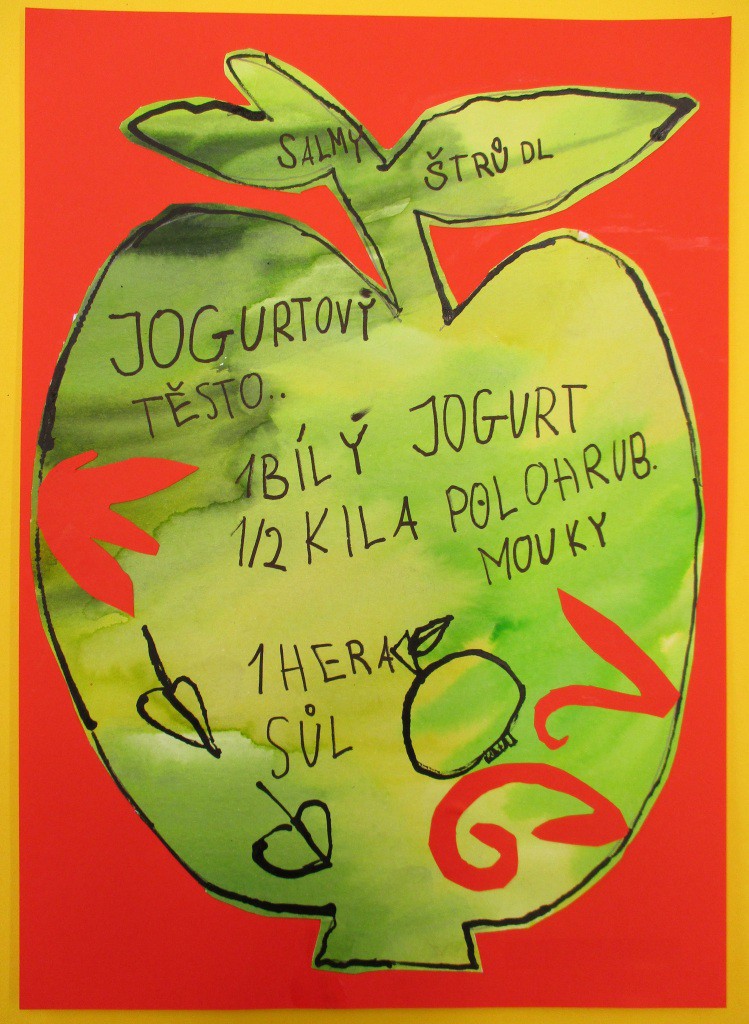 SALMY ŠTRŮDL
JOGURTOVÝ
TĚSTO..
1 BÍLÝ JOGURT
1/2 KILA POLOHRUB.
MOUKY
1 HERA
SŮL